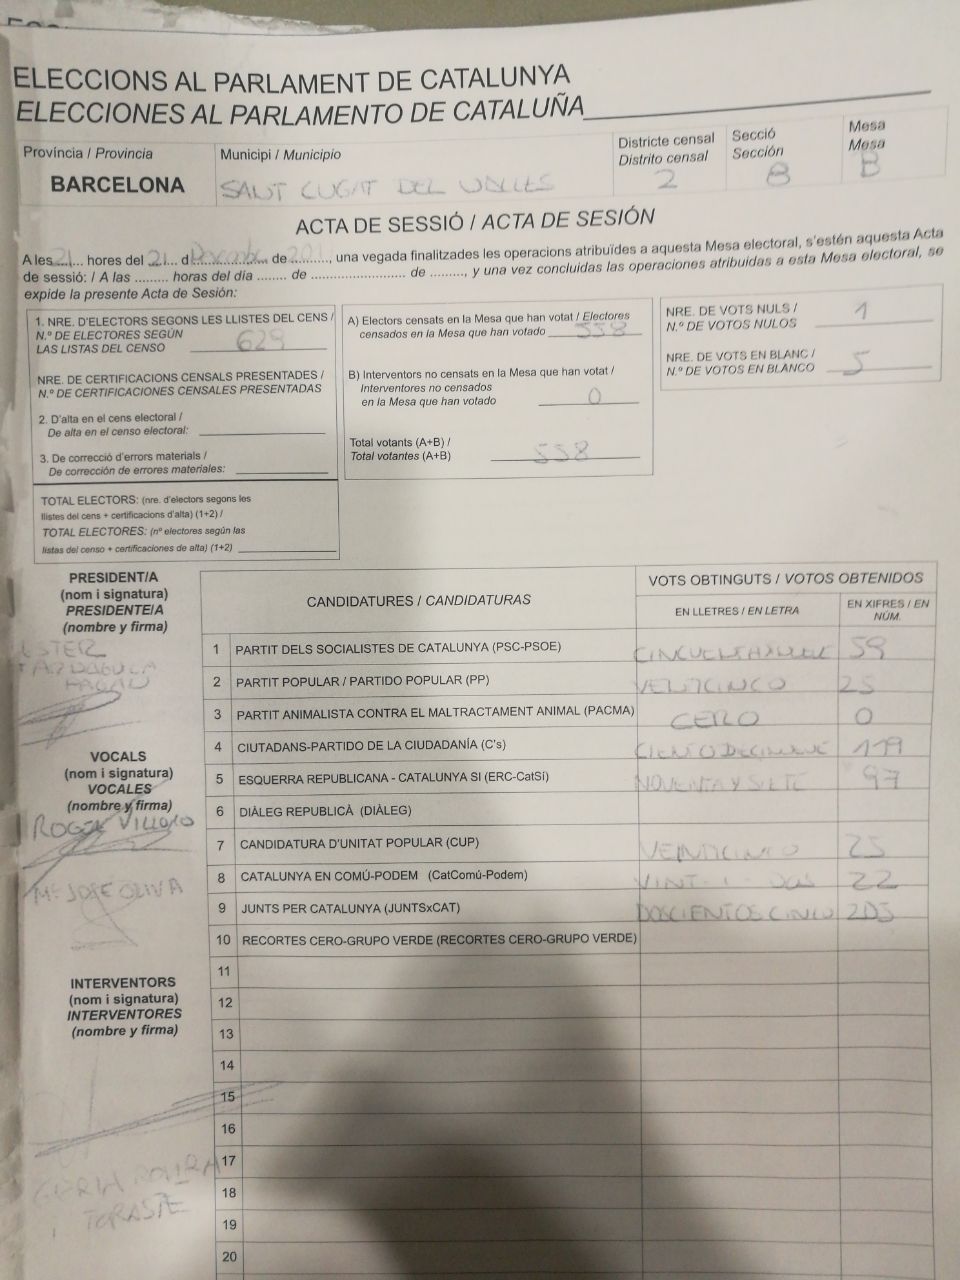 ELECCIONS AL PARLAMENT DE CATALUNYA
ELECCIONES AL PARLAMENTO DE CATALUÑA
Província / Provincia
BARCELONA
Municipi / Municipio
SANT CUGAT DEL VALLES
Districte censal
Distrito censal
2
Secció
Sección
8
Mesa
Mesa
B
ACTA DE SESSIÓ / ACTA DE SESIÓN
A les 21 hores del 21 d de 201, una vegada finalitzades les operacions atribuïdes a aquesta Mesa electoral, s'estén aquesta Acta
de sessió: / A las ......... horas del día ........ de .......................... de ........, y una vez concluidas las operaciones atribuidas a esta Mesa electoral, se
expide la presente Acta de Sesión:
1. NRE. D'ELECTORS SEGONS LES LLISTES DEL CENS /
N.º DE ELECTORES SEGÚN
LAS LISTAS DEL CENSO 629
NRE. DE CERTIFICACIONS CENSALS PRESENTADES /
N.º DE CERTIFICACIONES CENSALES PRESENTADAS
2. D'alta en el cens electoral /
De alta en el censo electoral:
3. De correcció d'errors materials /
De corrección de errores materiales:
TOTAL ELECTORS: (nre. d'electors segons les
llistes del cens + certificacions d'alta) (1+2) /
TOTAL ELECTORES: (nº electores según las
listas del censo + certificaciones de alta) (1+2)
A) Electors censats en la Mesa que han votat / Electores
censados en la Mesa que han votado 558
B) Interventors no censats en la Mesa que han votat /
Interventores no censados
en la Mesa que han votado 0
Total votants (A+B) /
Total votantes (A+B) 558
NRE. DE VOTS NULS /
N.º DE VOTOS NULOS 1
NRE. DE VOTS EN BLANC /
N.º DE VOTOS EN BLANCO 5
PRESIDENT/A
(nom i signatura)
PRESIDENTE/A
(nombre y firma)
VOCALS
(nom i signatura)
VOCALES
(nombre y firma)
ROGER
Mª JOSE OLIVA
INTERVENTORS
(nom i signatura)
INTERVENTORES
(nombre y firma)
CANDIDATURES / CANDIDATURAS
VOTS OBTINGUTS / VOTOS OBTENIDOS
EN LLETRES / EN LETRA
EN XIFRES / EN
NÚM.
1 PARTIT DELS SOCIALISTES DE CATALUNYA (PSC-PSOE) 59
2 PARTIT POPULAR / PARTIDO POPULAR (PP) VEINTICINCO 25
3 PARTIT ANIMALISTA CONTRA EL MALTRACTAMENT ANIMAL (PACMA) CERO 0
4 CIUTADANS-PARTIDO DE LA CIUDADANÍA (C's) 119
5 ESQUERRA REPUBLICANA - CATALUNYA SI (ERC-CatSí) NOVENTA Y SIETE 97
6 DIÀLEG REPUBLICÀ (DIÀLEG)
7 CANDIDATURA D'UNITAT POPULAR (CUP) VEINTICINCO 25
8 CATALUNYA EN COMÚ-PODEM (CatComú-Podem) VINT-I-DOS 22
9 JUNTS PER CATALUNYA (JUNTSxCAT) DOSCIENTOS CINCO 205
10 RECORTES CERO-GRUPO VERDE (RECORTES CERO-GRUPO VERDE)
11
12
13
14
15
16
17
18
19
20